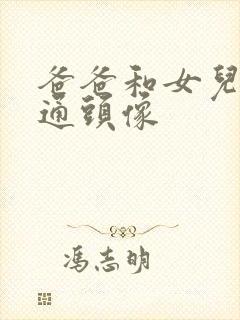 爸爸和女兒
通頭像
馮志明